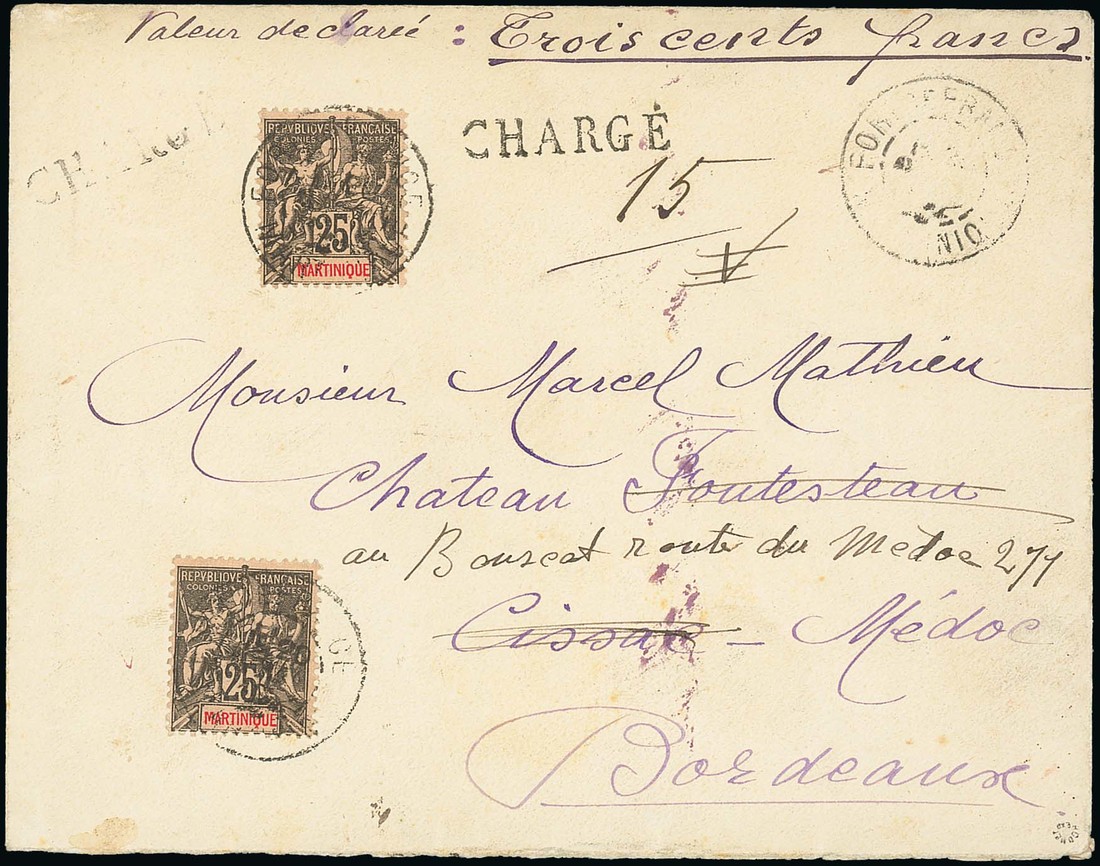 Valeur declarée : Trois cents francs
CHARGÉ
CHARGÉ
15
REPVBLIQUE FRANÇAISE
COLONIES POSTES
25
MARTINIQUE
FORT DE FRANCE
Monsieur Marcel Mathieu
Chateau Fontesteau
au Bouscat route du Médoc 277
Cissac - Médoc
Bordeaux
REPVBLIQUE FRANÇAISE
COLONIES POSTES
25
MARTINIQUE
CE